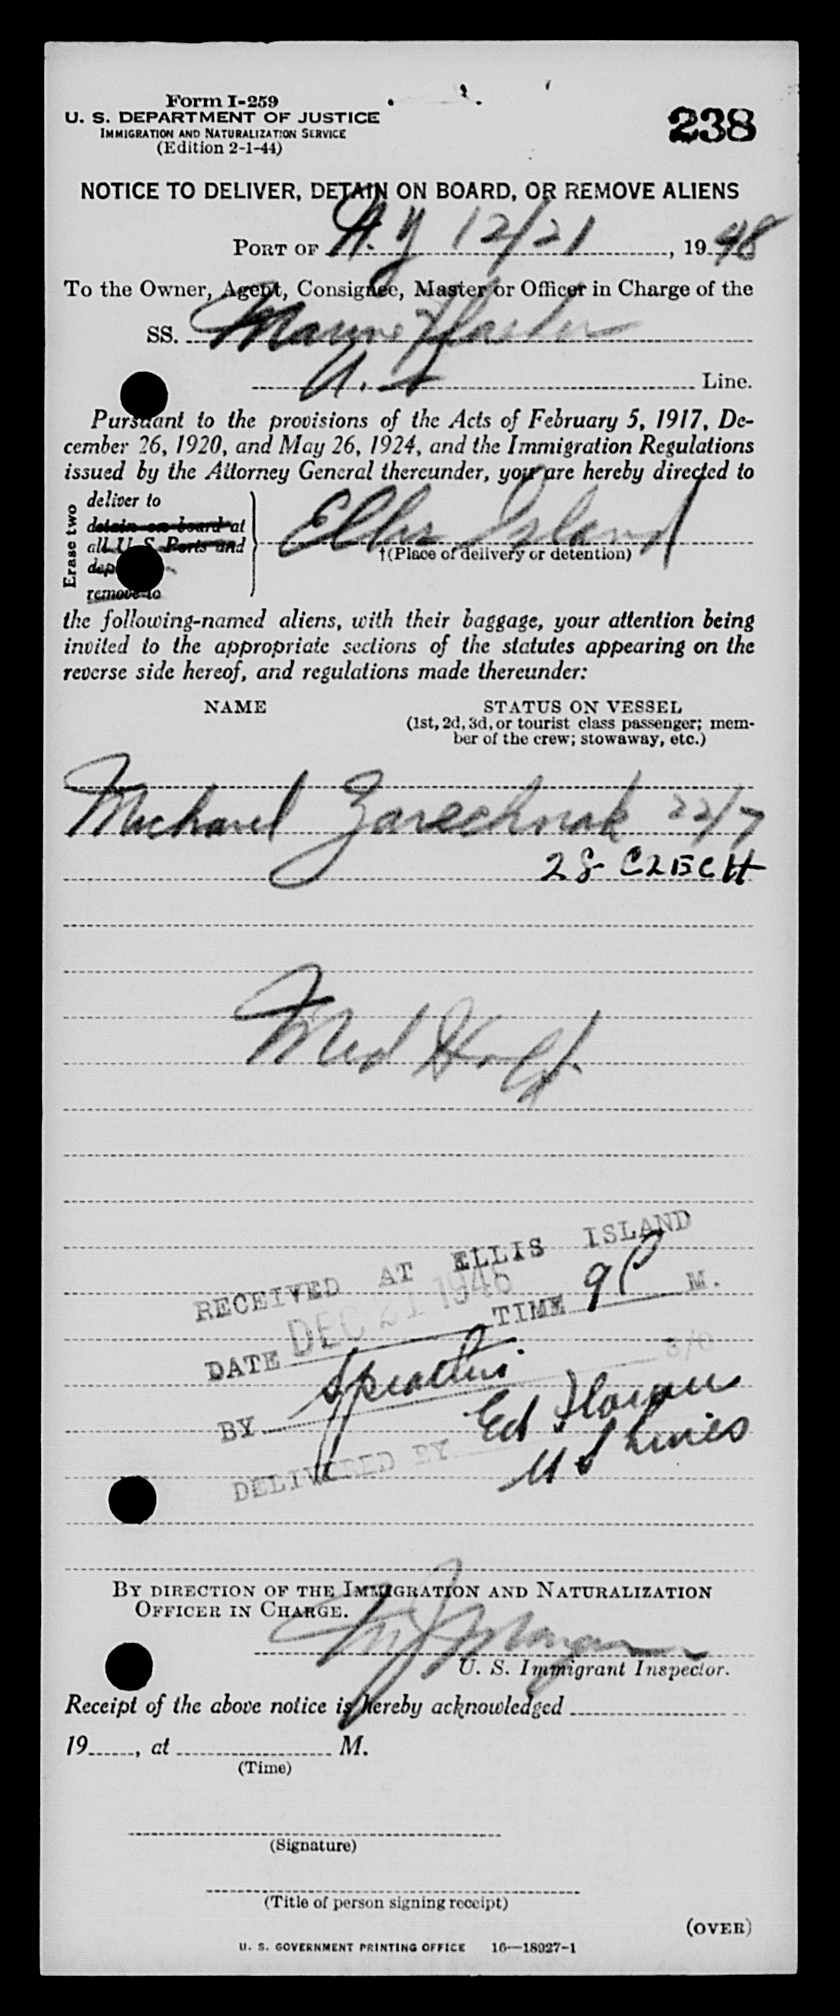 Form I-259
U. S. DEPARTMENT OF JUSTICE
IMMIGRATION AND NATURALIZATION SERVICE
(Edition 2-1-44)
238
NOTICE TO DELIVER, DETAIN ON BOARD, OR REMOVE ALIENS
PORT OF N. Y 12/21, 1948
To the Owner, Agent, Consignee, Master or Officer in Charge of the
SS. Marine Flasher
U. S Line.
Pursuant to the provisions of the Acts of February 5, 1917, De-
cember 26, 1920, and May 26, 1924, and the Immigration Regulations
issued by the Attorney General thereunder, you are hereby directed to
Erase two
deliver to
detain on board at
all U. S. Ports and
remove to
Ellis Island
†(Place of delivery or detention)
the following-named aliens, with their baggage, your attention being
invited to the appropriate sections of the statutes appearing on the
reverse side hereof, and regulations made thereunder:
NAME
STATUS ON VESSEL
(1st, 2d, 3d, or tourist class passenger; mem-
ber of the crew; stowaway, etc.)
Michael Zarechnak 22/7
28 CZECH
Med Hosp.
RECEIVED AT ELLIS ISLAND
DATE DEC 21 1948 TIME 9 P M.
BY
DELIVERED BY Ed
U S Lines
BY DIRECTION OF THE IMMIGRATION AND NATURALIZATION
OFFICER IN CHARGE.
U. S. Immigrant Inspector.
Receipt of the above notice is hereby acknowledged
19, at M.
(Time)
(Signature)
(Title of person signing receipt)
(OVER)
U. S. GOVERNMENT PRINTING OFFICE 16—18927-1